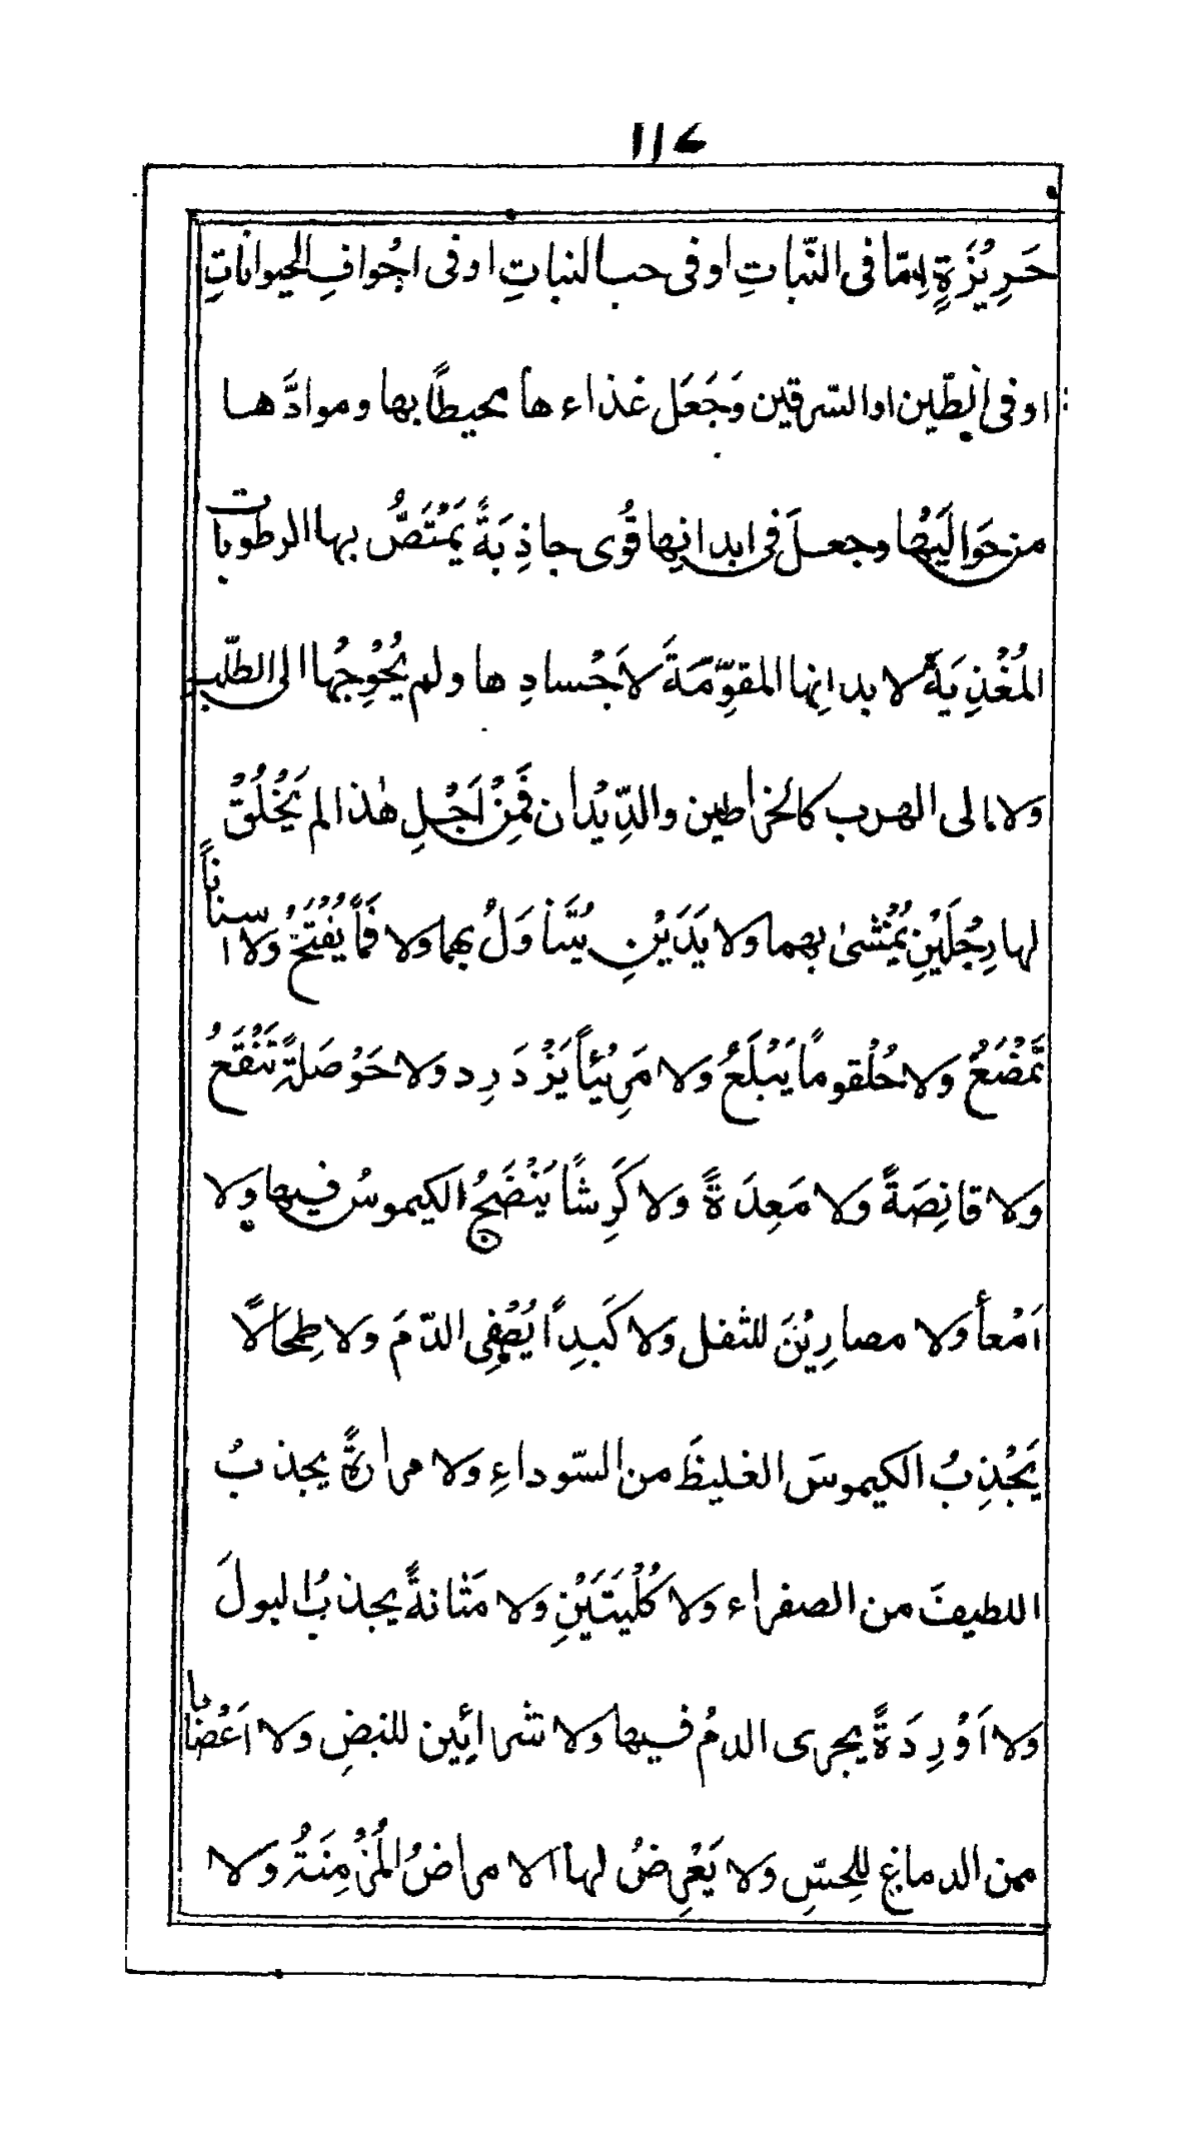 ١١٤
حَرِيْزَةٍ اِمّا فى النّباتِ او فى حب النباتِ او فى اجْوافِ الحيواناتِ
او فى الطّين او السّرقين وَجَعَل غذاءها محيطًا بها وموادَّها
من حَوَالَيْها وجعلَ فى ابدانِها قُوى جاذِبَةً يَمْتَصُّ بها الرطوبات
المُغْذِيَةَ لابدانِها المقوِّمَةَ لاَجْسادِها ولم يُحْوِجْها الى الطّلب
ولا الى الهرب كالخراطين والدِّيْدان فَمِنْ اَجْلِ هٰذا لم يَخْلُقْ
لها رِجْلَيْنِ يُمْشىٰ بهما ولا يَدَيْنِ يُتَناوَلُ بهما ولا فَمًا يُفْتَحُ ولا اسناناً
تَمْضَغُ ولا حُلْقومًا يَبْلَعُ ولا مَرِيْئاً يَزْدَرِد ولا حَوْصَلَةً تَنْقَعُ
ولا قانِصَةً ولا مَعِدَةً ولا كَرِشًا يَنْضَجُ الكيموسُ فيها ولا
اَمْعأ ولا مصارِيْنَ للثفل ولا كَبِداً يُصْفِى الدّمَ ولا طِحالًا
يَجْذِبُ الكيموسَ الغليظَ من السّوداءِ ولا مرارةً يجذبُ
اللطيفَ من الصفراء ولا كُلْيَتَيْنِ ولا مَثانةً يجذبُ البولَ
ولا اَوْرِدَةً يجرى الدمُ فيها ولا شرائِين للنبضِ ولا اَعْضابا
من الدماغِ للحِسّ ولا يَعْرِضُ لها الامراضُ المُزْمِنَةُ ولا